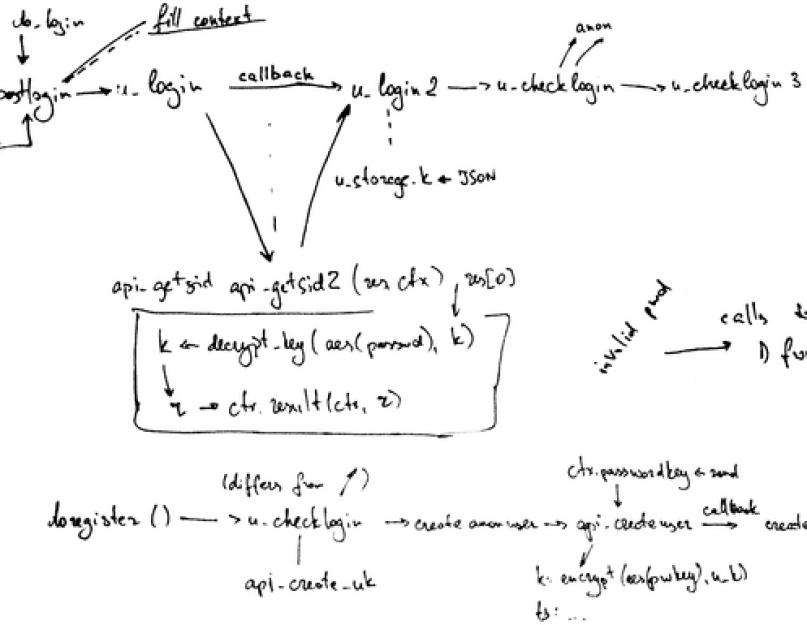 do_login
fill context
postlogin → u_login callback → u_login2 → u_checklogin → u_checklogin3
anon
u_storage.k ← JSON
api_getsid api_getsid2 (res ctx) res[0]
k ← decrypt_key(aes(passwd), k)
r → ctx.result(ctx, r)
invalid pwd
calls
1)
(differs from ↗)
doregister () → u_checklogin → create anon user → api_createuser callback → create
ctx.passwordkey ← rand
api_create_uk
k: encrypt (aes(pwkey), u_k)
ts: ...